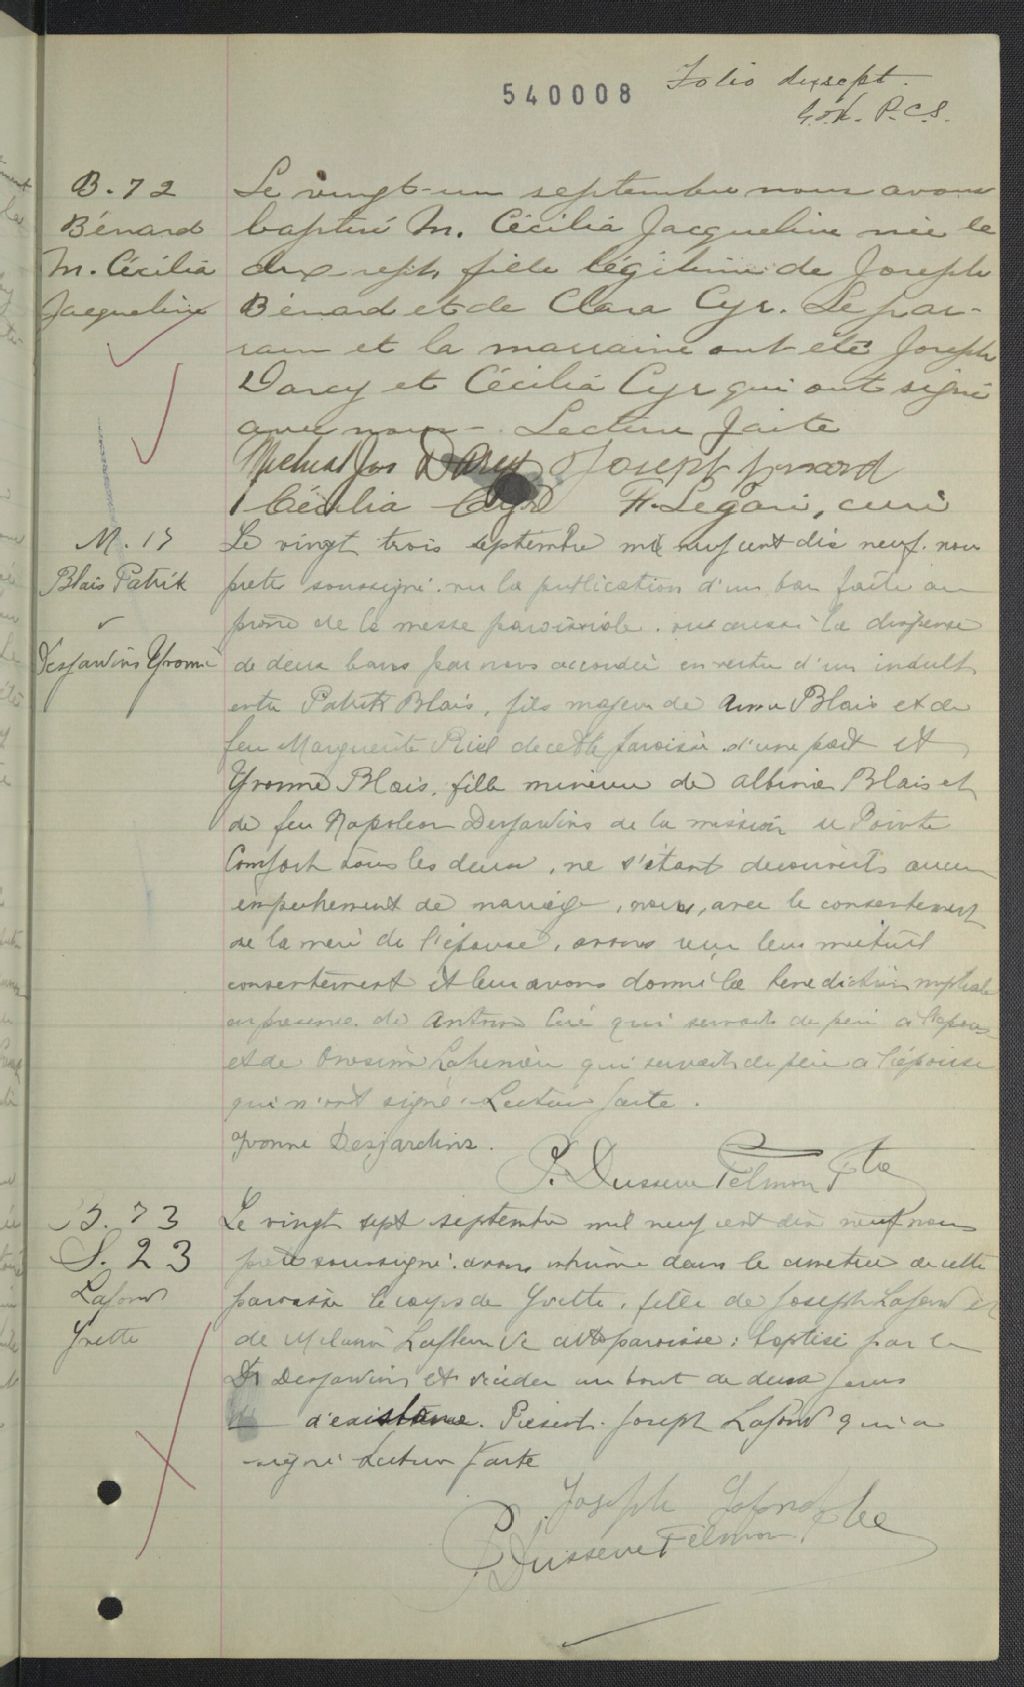 540008
Folio dixsept.
P.C.S.
B. 72
Bénard
M. Cécilia
Jacqueline
Le vingt-un septembre nous avons
baptisé M. Cécilia Jacqueline née le
dix sept, fille légitime de Joseph
Bénard et de Clara Cyr. Le par-
rain et la marraine ont été Joseph
Darcy et Cécilia Cyr qui ont signé
avec nous - Lecture faite
Michael Jos Darcy Joseph
Cécilia Cyr F. Legari, curé
M. 17
Blais Patrik
Desjardins Yvonne
Le vingt trois septembre mil neuf cent dix neuf. nous
prete soussigné. vu la publication d'un ban faite au
prone de la messe paroissiale. vu aussi la dispense
de deux bans par nous accordée en vertu d'un indult
entre Patrik Blais, fils majeur de Blais et de
feu Marguerite Riel de cette paroisse d'une part et
Yvonne Blais, fille mineure de albina Blais et
de feu Napoleon Desjardins de la mission Pointe
Comfort tous les deux, ne s'étant decouverts aucun
empechement de mariage, nous, avec le consentement
de la mere de l'épouse, avons reçu leur mutuel
consentement et leur avons donné la benediction nuptiale
en presence de qui servait de pere a l'epoux
et de Onesime Lafreniere qui servait de pere a l'épouse
qui n'ont signé. Lecture faite.
Yvonne Desjardins.
P. Dusseve Felmon Ptre
B. 73
S. 23
Lafond
Yvette
Le vingt sept septembre mil neuf cent dix neuf nous
prete soussigné. avons inhumé dans le cimetiere de cette
paroisse le corps de Yvette, fille de Joseph Lafond et
de Melania Lafleur de cette paroisse: baptisé par le
Dr Desjardins et décidee au bout de deux jours
d'existance. Present. Joseph Lafond qui a
signé Lecture faite
Joseph Lafond
P. Dusseve Felmon Ptre